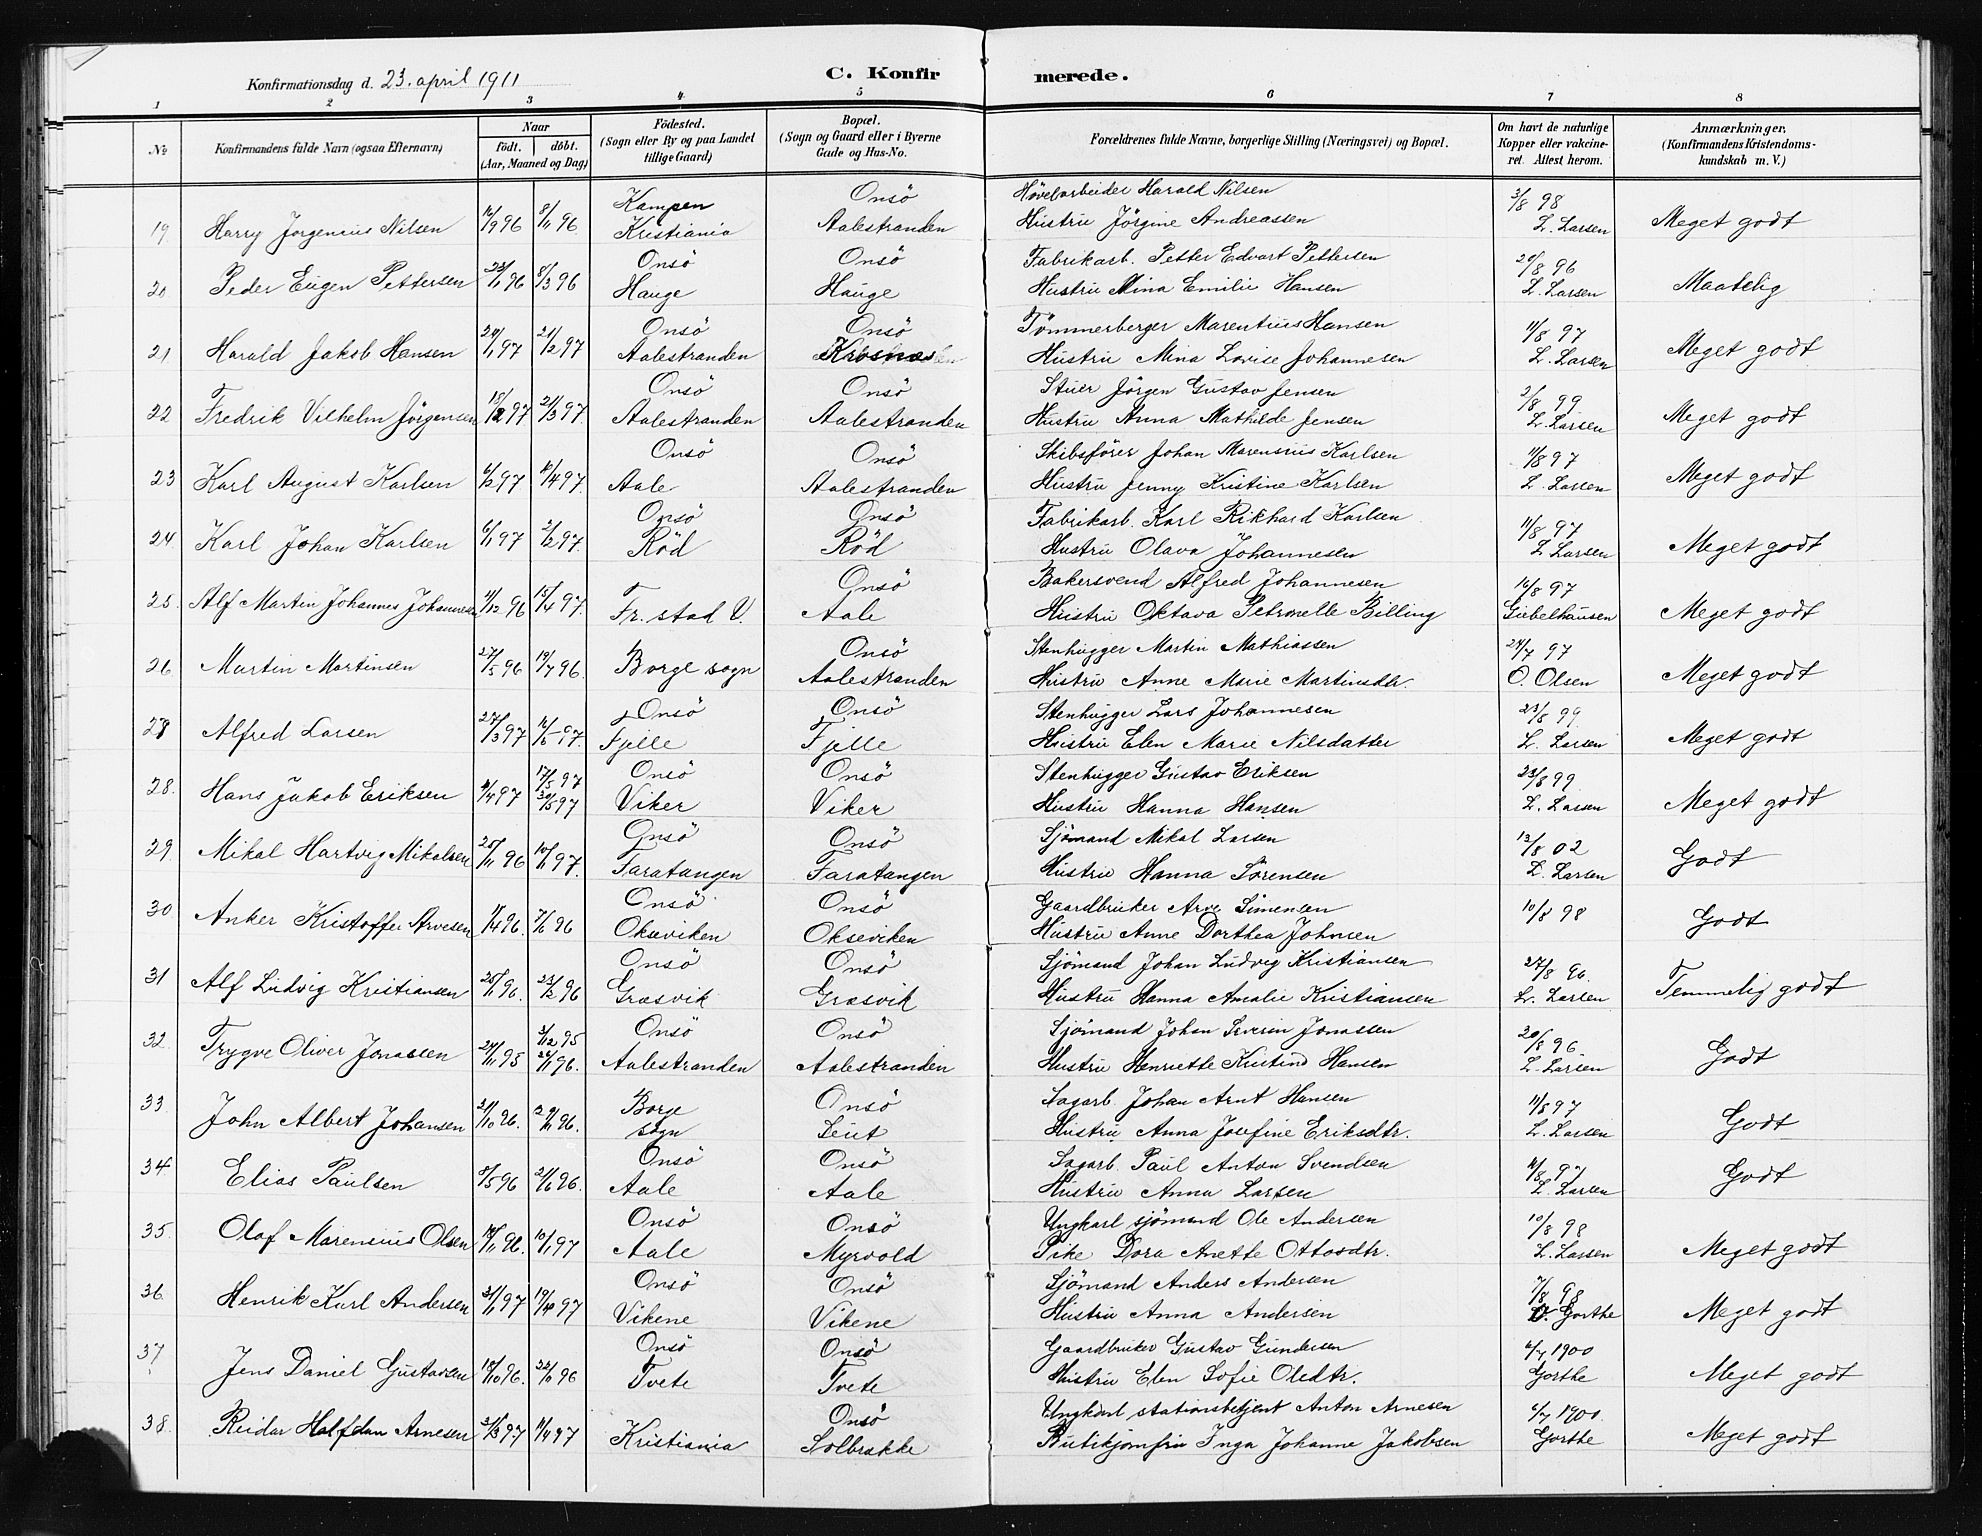 Konfirmationsdag d. 23. april 1911
C. Konfirmerede.
1 2 3 4 5 6 7 8
No
Konfirmandens fulde Navn (ogsaa Efternavn)
Naar
født. døbt.
(Aar, Maaned og Dag)
Fødested.
(Sogn eller By og paa Landet
tillige Gaard)
Bopæl.
(Sogn og Gaard eller i Byerne
Gade og Hus-No.
Forældrenes fulde Navne, borgerlige Stilling (Næringsvei) og Bopæl.
Om havt de naturlige
Kopper eller vakcine-
ret. Attest herom.
Anmærkninger.
(Konfirmandens Kristendoms-
kundskab m. V.)
Kampen Onsö Hövelarbeider Harald Nilsen 3/8 98
19 Harry Jørgenius Nilsen 16/9 96 8/11 96 Kristiania Aalestranden Hustru Jörgine Andreassen L. Larsen Meget godt
Onsö Onsö Fabrikarb. Petter Edvart Pettersen 20/8 96
20 Peder Eugen Pettersen 23/1 96 8/3 96 Hauge Hauge Hustru Mina Emilie Hansen L. Larsen Maatelig
Onsö Onsö Tömmerberger Marentius Hansen 11/8 97
21 Harald Jakob Hansen 24/1 97 21/2 97 Aalestranden Hustru Mina Lovise Johannesen L. Larsen Meget godt
Onsö Onsö Stuer Jörgen Gustav Jensen 2/8 99
22 Fredrik Vilhelm Jörgensen 18/2 97 21/3 97 Aalestranden Aalestranden Hustru Anna Mathilde Jensen L. Larsen Meget godt
Onsö Onsö Skibsförer Johan Marensius Karlsen 11/8 97
23 Karl August Karlsen 6/2 97 4/4 97. Aale Aalestranden Hustru Jenny Kristine Karlsen L. Larsen Meget godt
Onsö Onsö Fabrikarb. Karl Rikhard Karlsen 11/8 97
24 Karl Johan Karlsen 6/1 97 2/2 97. Röd Röd Hustru Olava Johannesen L. Larsen Meget godt
Onsö Bakersvend Alfred Johannesen 16/8 97
25. Alf Martin Johannes Johannesen 11/12 96 15/4 97. Fr. stad V. Aale Hustru Oktava Petronelle Billing Giebelhausen Meget godt
Onsö Stenhugger Martin Mathiassen 24/7 97
26 Martin Martinsen 27/5 96 19/7 96. Borge sogn Aalestranden Hustru Anne Marie Martinsdtr. O. Olsen Meget godt
Onsö Onsö Stenhugger Lars Johannesen 23/8 99
27 Alfred Larsen 27/3 97 16/5 97. Fjelle Fjelle Hustru Elen Marie Nilsdatter L. Larsen Meget godt
17/5 97 Onsö Onsö Stenhugger Gustav Eriksen 23/8 99
28. Hans Jakob Eriksen 4/4 97 30/5 97 Viker Viker Hustru Hanna Hansen L. Larsen Meget godt
Onsö Onsö Sjömand Mikal Larsen 13/8 02
29. Mikal Hartvig Mikalsen 25/11 96 10/1 97. Faratangen Faratangen Hustru Hanna Sörensen L. Larsen Godt
Onsö Onsö Gaardbruker Arve Simensen 10/8 98
30 Anker Kristoffer Arvesen 1/4 96. 7/6 96 Okseviken Okseviken Hustru Anne Dorthea Johnsen Godt
Onsö Onsö Sjömand Johan Ludvig Kristiansen 27/8 96.
31 Alf Ludvig Kristiansen 25/1 96. 23/2 96 Græsvik Græsvik Hustru Hanna Amalie Kristiansen L. Larsen Temmelig godt
3/12 95 Onsö Onsö Sjömand Johan Severin Jonassen 20/8 96
32. Trygve Oliver Jonassen 24/11 95 26/1 96. Aalestranden Aalestranden Hustru Henriette Kristine Hansen L. Larsen Godt
Borge Onsö Sagarb. Johan Arnt Hansen 11/8 97
33 John Albert Johansen 21/10 96. 29/11 96. sogn Leut Hustru Anna Josefine Eriksdtr. L. Larsen Godt
Onsö Onsö Sagarb. Paul Anton Svendsen 11/8 97
34. Elias Paulsen 8/5 96 21/6 96. Aale Aale Hustru Anna Larsen L. Larsen Godt
Onsö Onsö Ungkarl sjömand Ole Andersen 10/8 98
35. Olaf Marensius Olsen 18/11 96. 10/1 97 Aale Myrvold Pike Dora Anette Ottosdtr. L. Larsen Meget godt
Onsö Onsö Sjömand Anders Andersen 7/8 98
36. Henrik Karl Andersen 31/1 97 19/4 97 Vikene Vikene Hustru Anna Andersen Gorthe Meget godt
Onsö Onsö Gaardbruker Gustav Gundersen 6/7 1900
37 Jens Daniel Gustavsen 18/10 96. 22/11 96 Tvete Tvete Hustru Elen Sofie Olsdtr. Gorthe Meget godt
Onsö Ungkarl stationsbetjent Anton Arnesen 6/7 1900.
38. Reidar Halfdan Arnesen 31/3 97 11/4 97 Kristiania Solbrække Butikjomfru Inga Johanne Jakobsen Gorthe Meget godt